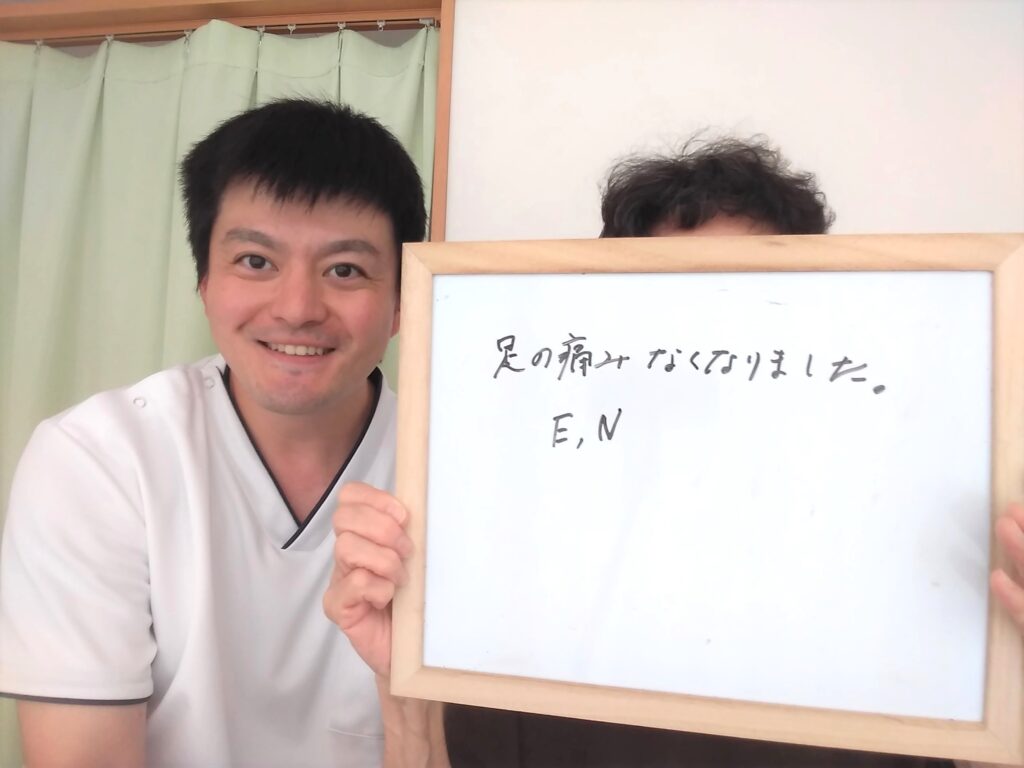 足の痛みなくなりました。
E,N